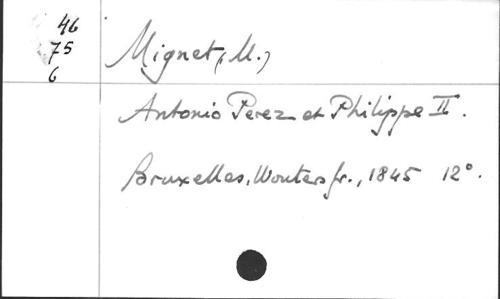 46
75
6
Mignet (M.)
Antonio Perez et Philippe II.
Bruxelles, Wouters fr., 1845 12°.